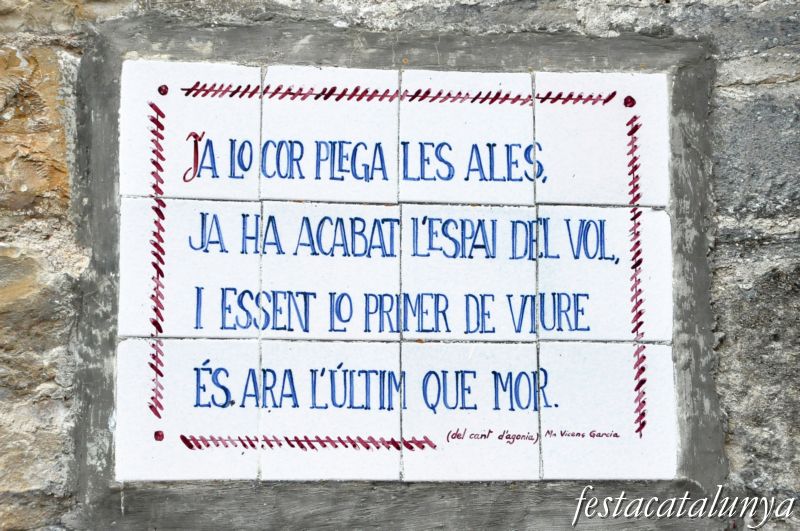 JA LO COR PLEGA LES ALES,
JA HA ACABAT L'ESPAI DEL VOL,
I ESSENT LO PRIMER DE VIURE
ÉS ARA L'ÚLTIM QUE MOR.
(del cant d'agonia) Mn Vicens Garcia
festacatalunya